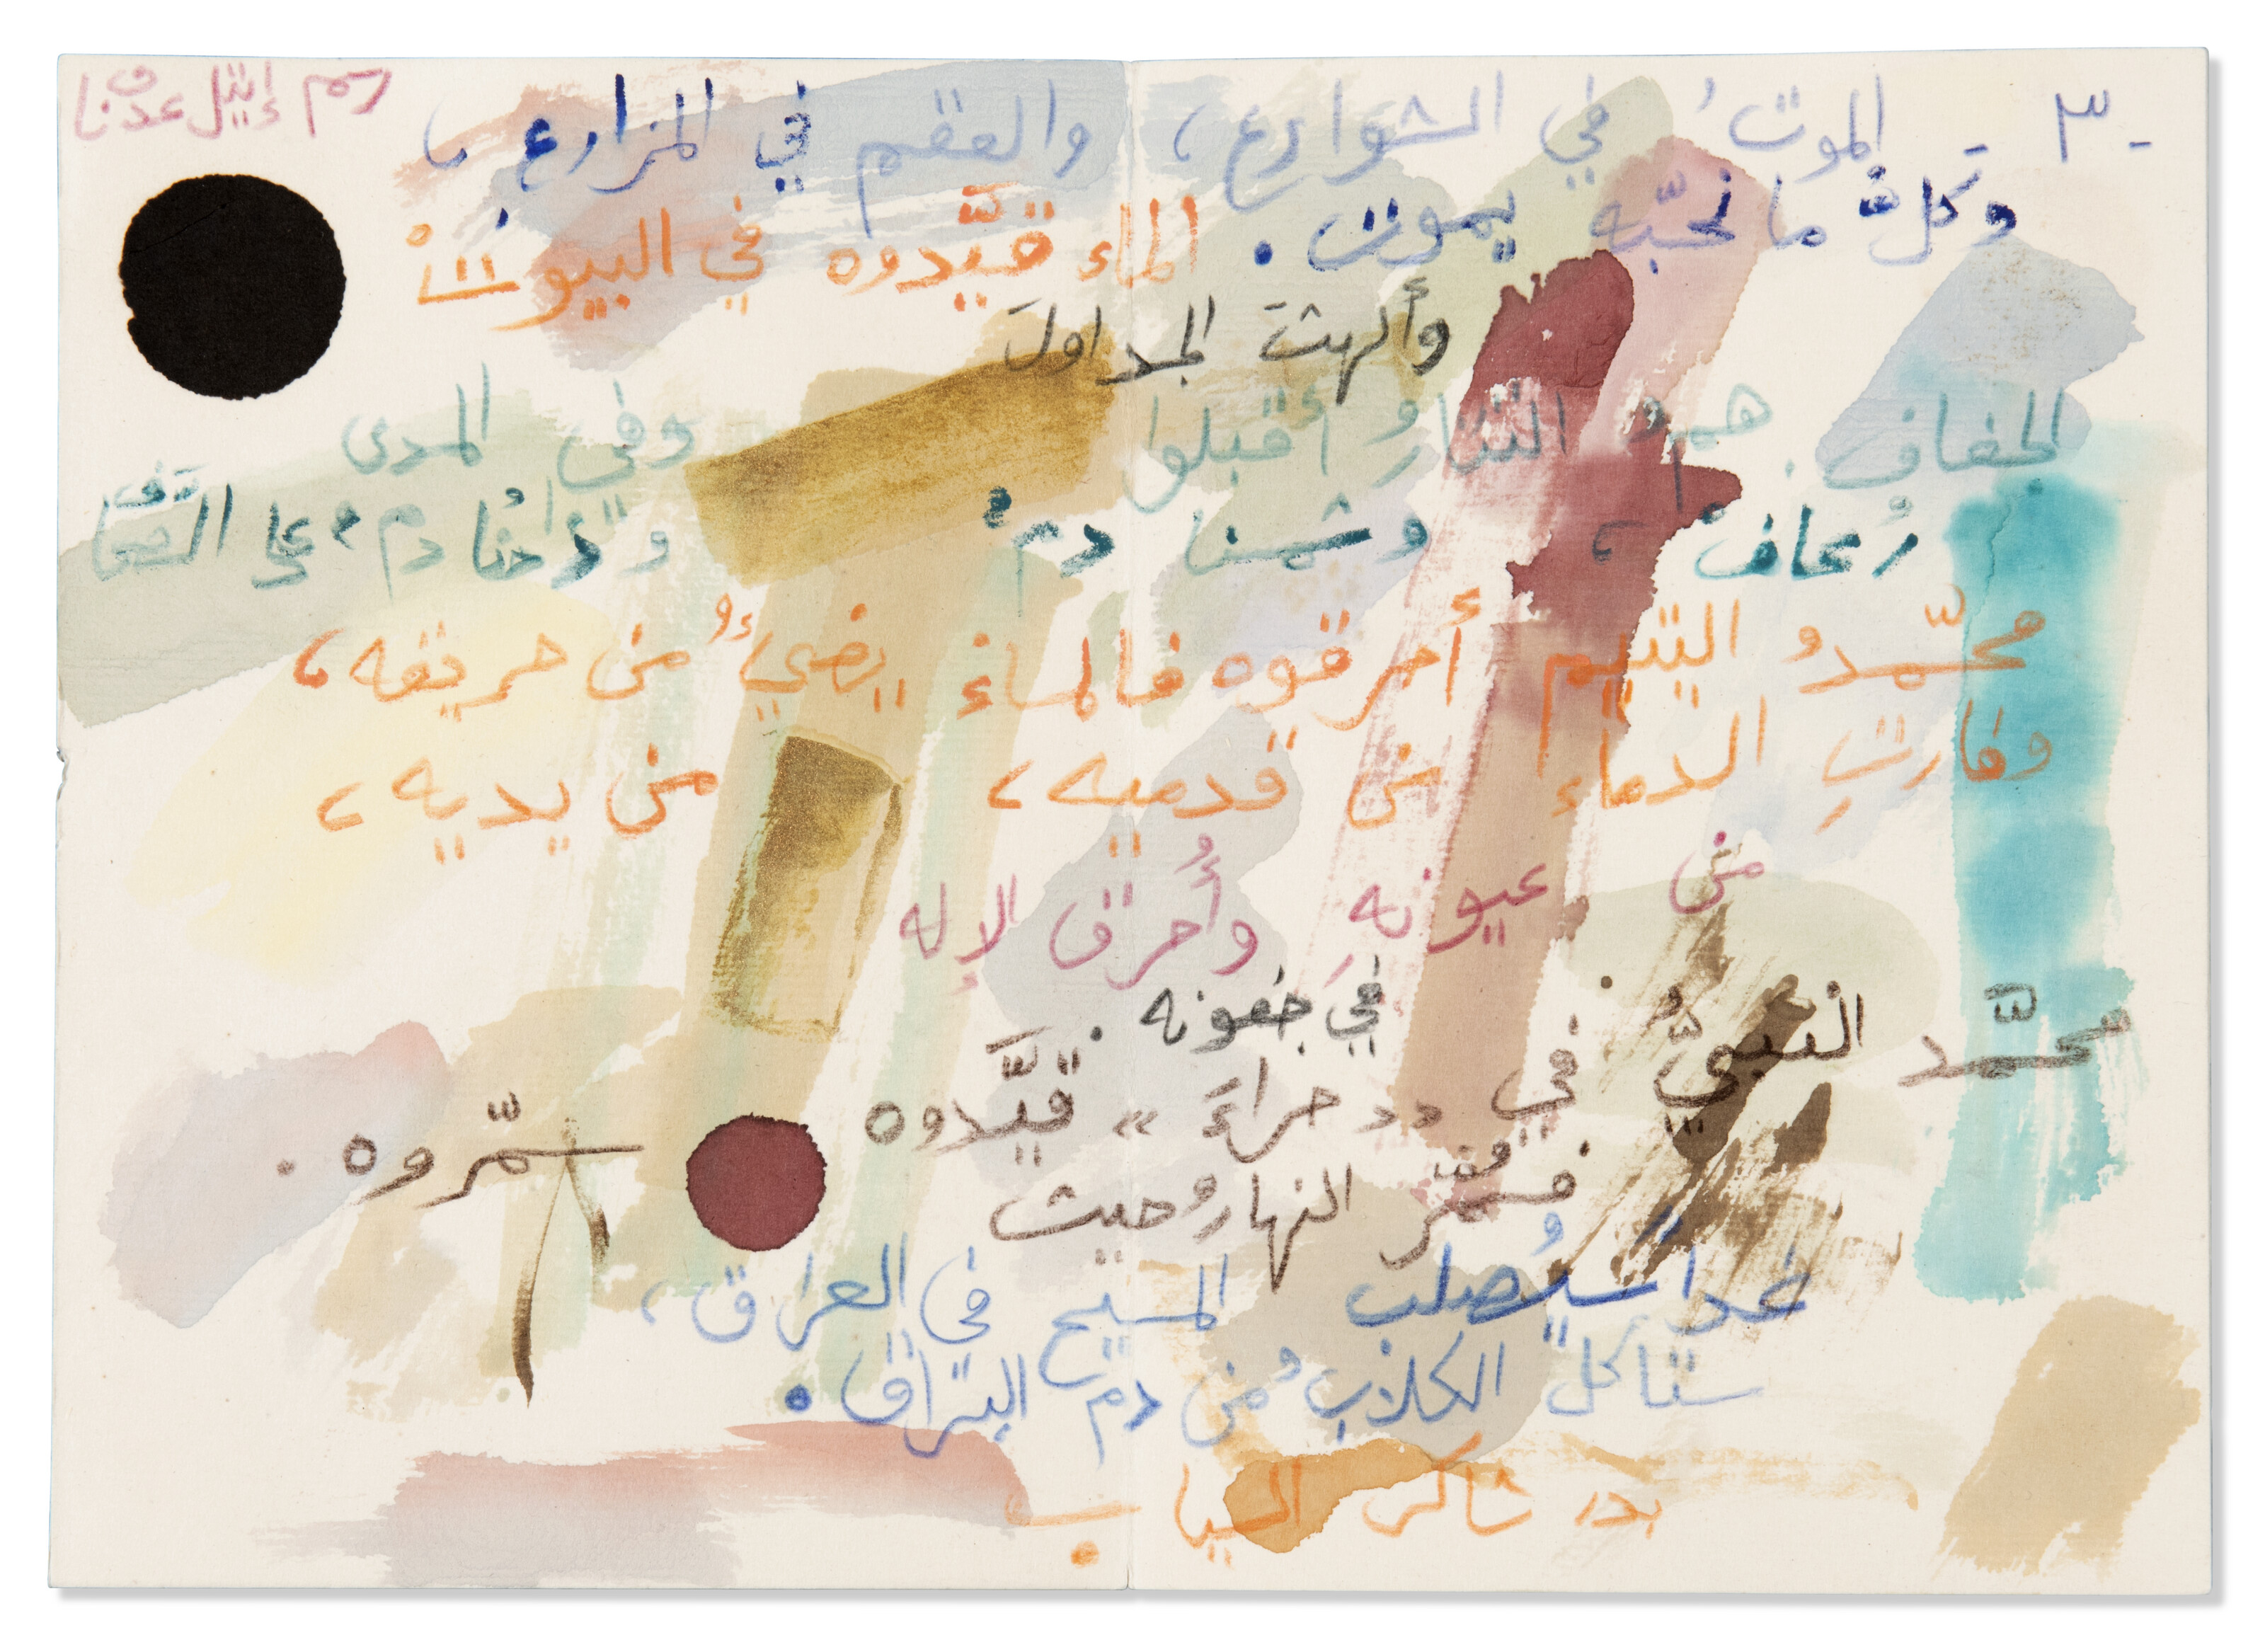 - ٣ -
الموتُ في الشوارع، والعقم في المزارع،
وكلّ ما نحبّه يموت. الماء قيّدوه في البيوتْ
وألهث الجداولَ
الجفاف. همُ التتارُ أقبلوا وفي المدى
رُعافْ، وشمسنا دمٌ وزادُنا دمٌ على الصِّحافْ
محمّدُ اليتيم أحرقوه فالمساءُ يضيءُ من حريقه،
وفارتِ الدماء من قدميه، من يديه،
من عيونهِ وأُحرق الإله
في جفونه.
محمّد النبيُّ في «حراءَ» قيّدوه
فسمّر النهارُ حيث سمّروه.
غداً سيُصلب المسيح في العراق،
ستأكل الكلابُ من دم البراق.
بدر شاكر السياب
رسم إيتيل عدنان